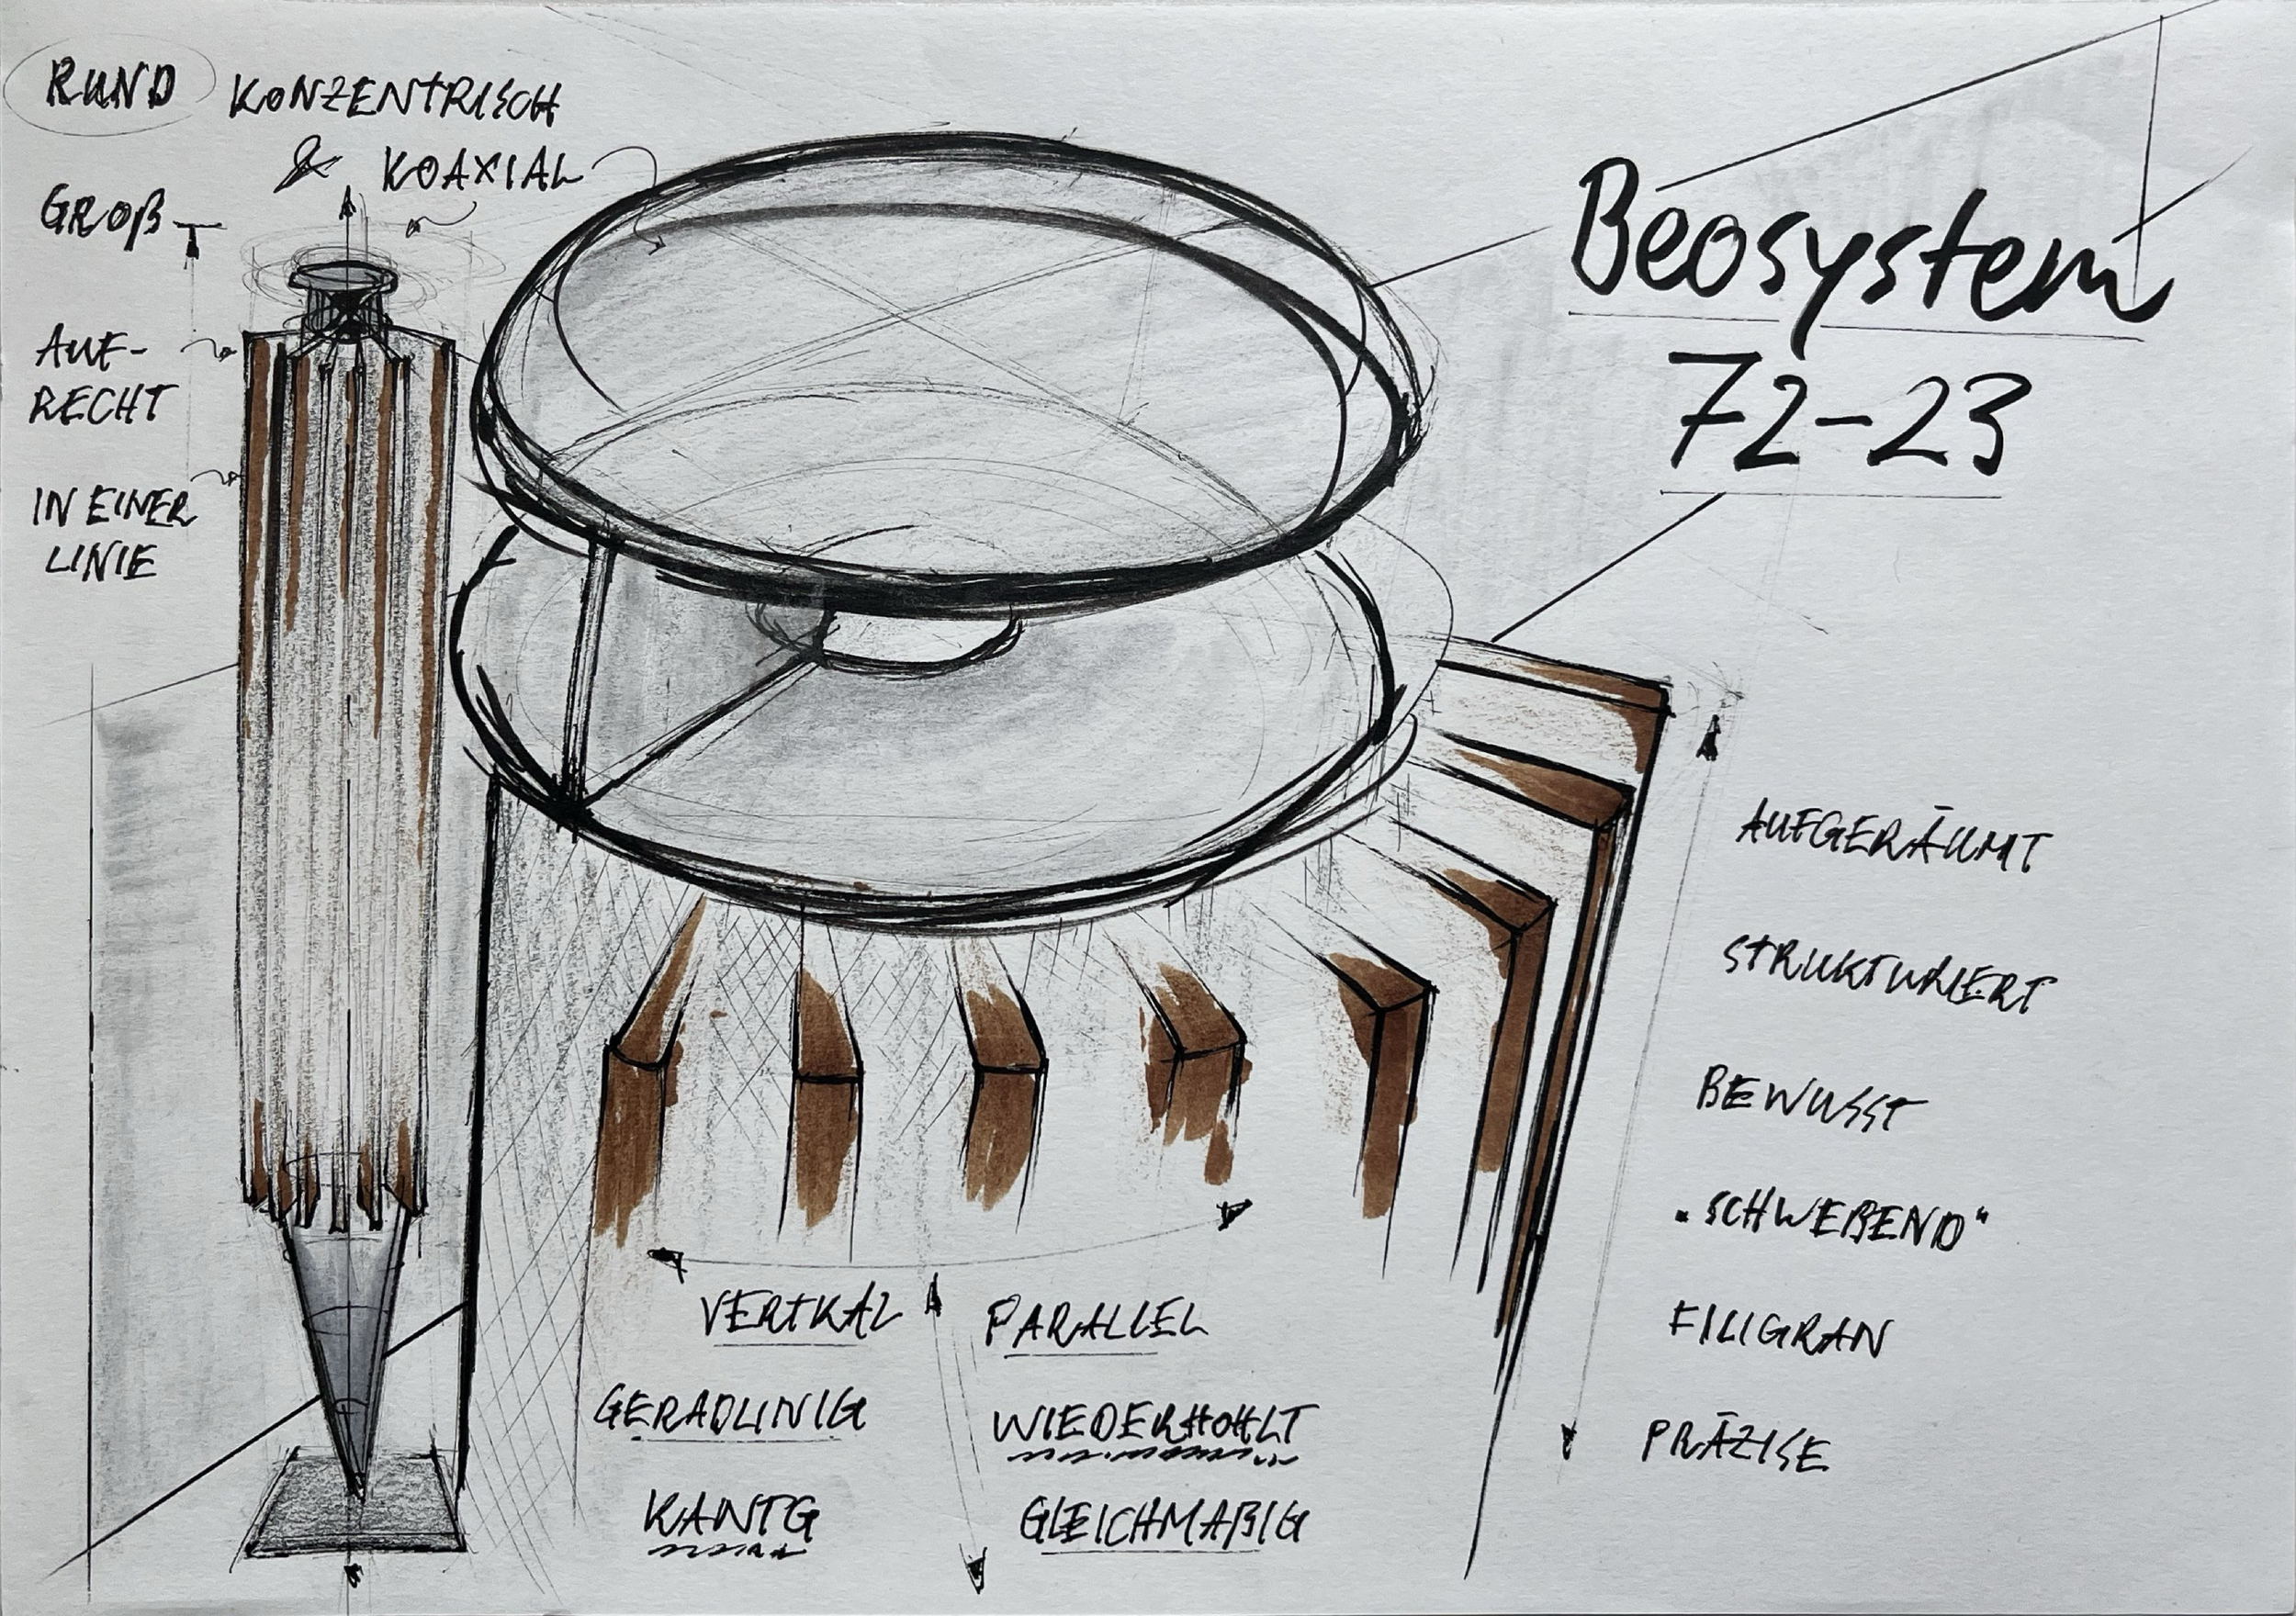 RUND KONZENTRISCH
& KOAXIAL
GROß
AUF-
RECHT
IN EINER
LINIE
Beosystem
72-23
AUFGERÄUMT
STRUKTURIERT
BEWUSST
"SCHWEBEND"
FILIGRAN
PRÄZISE
VERTKAL PARALLEL
GERADLINIG WIEDERHOHLT
KANTG GLEICHMAßIG